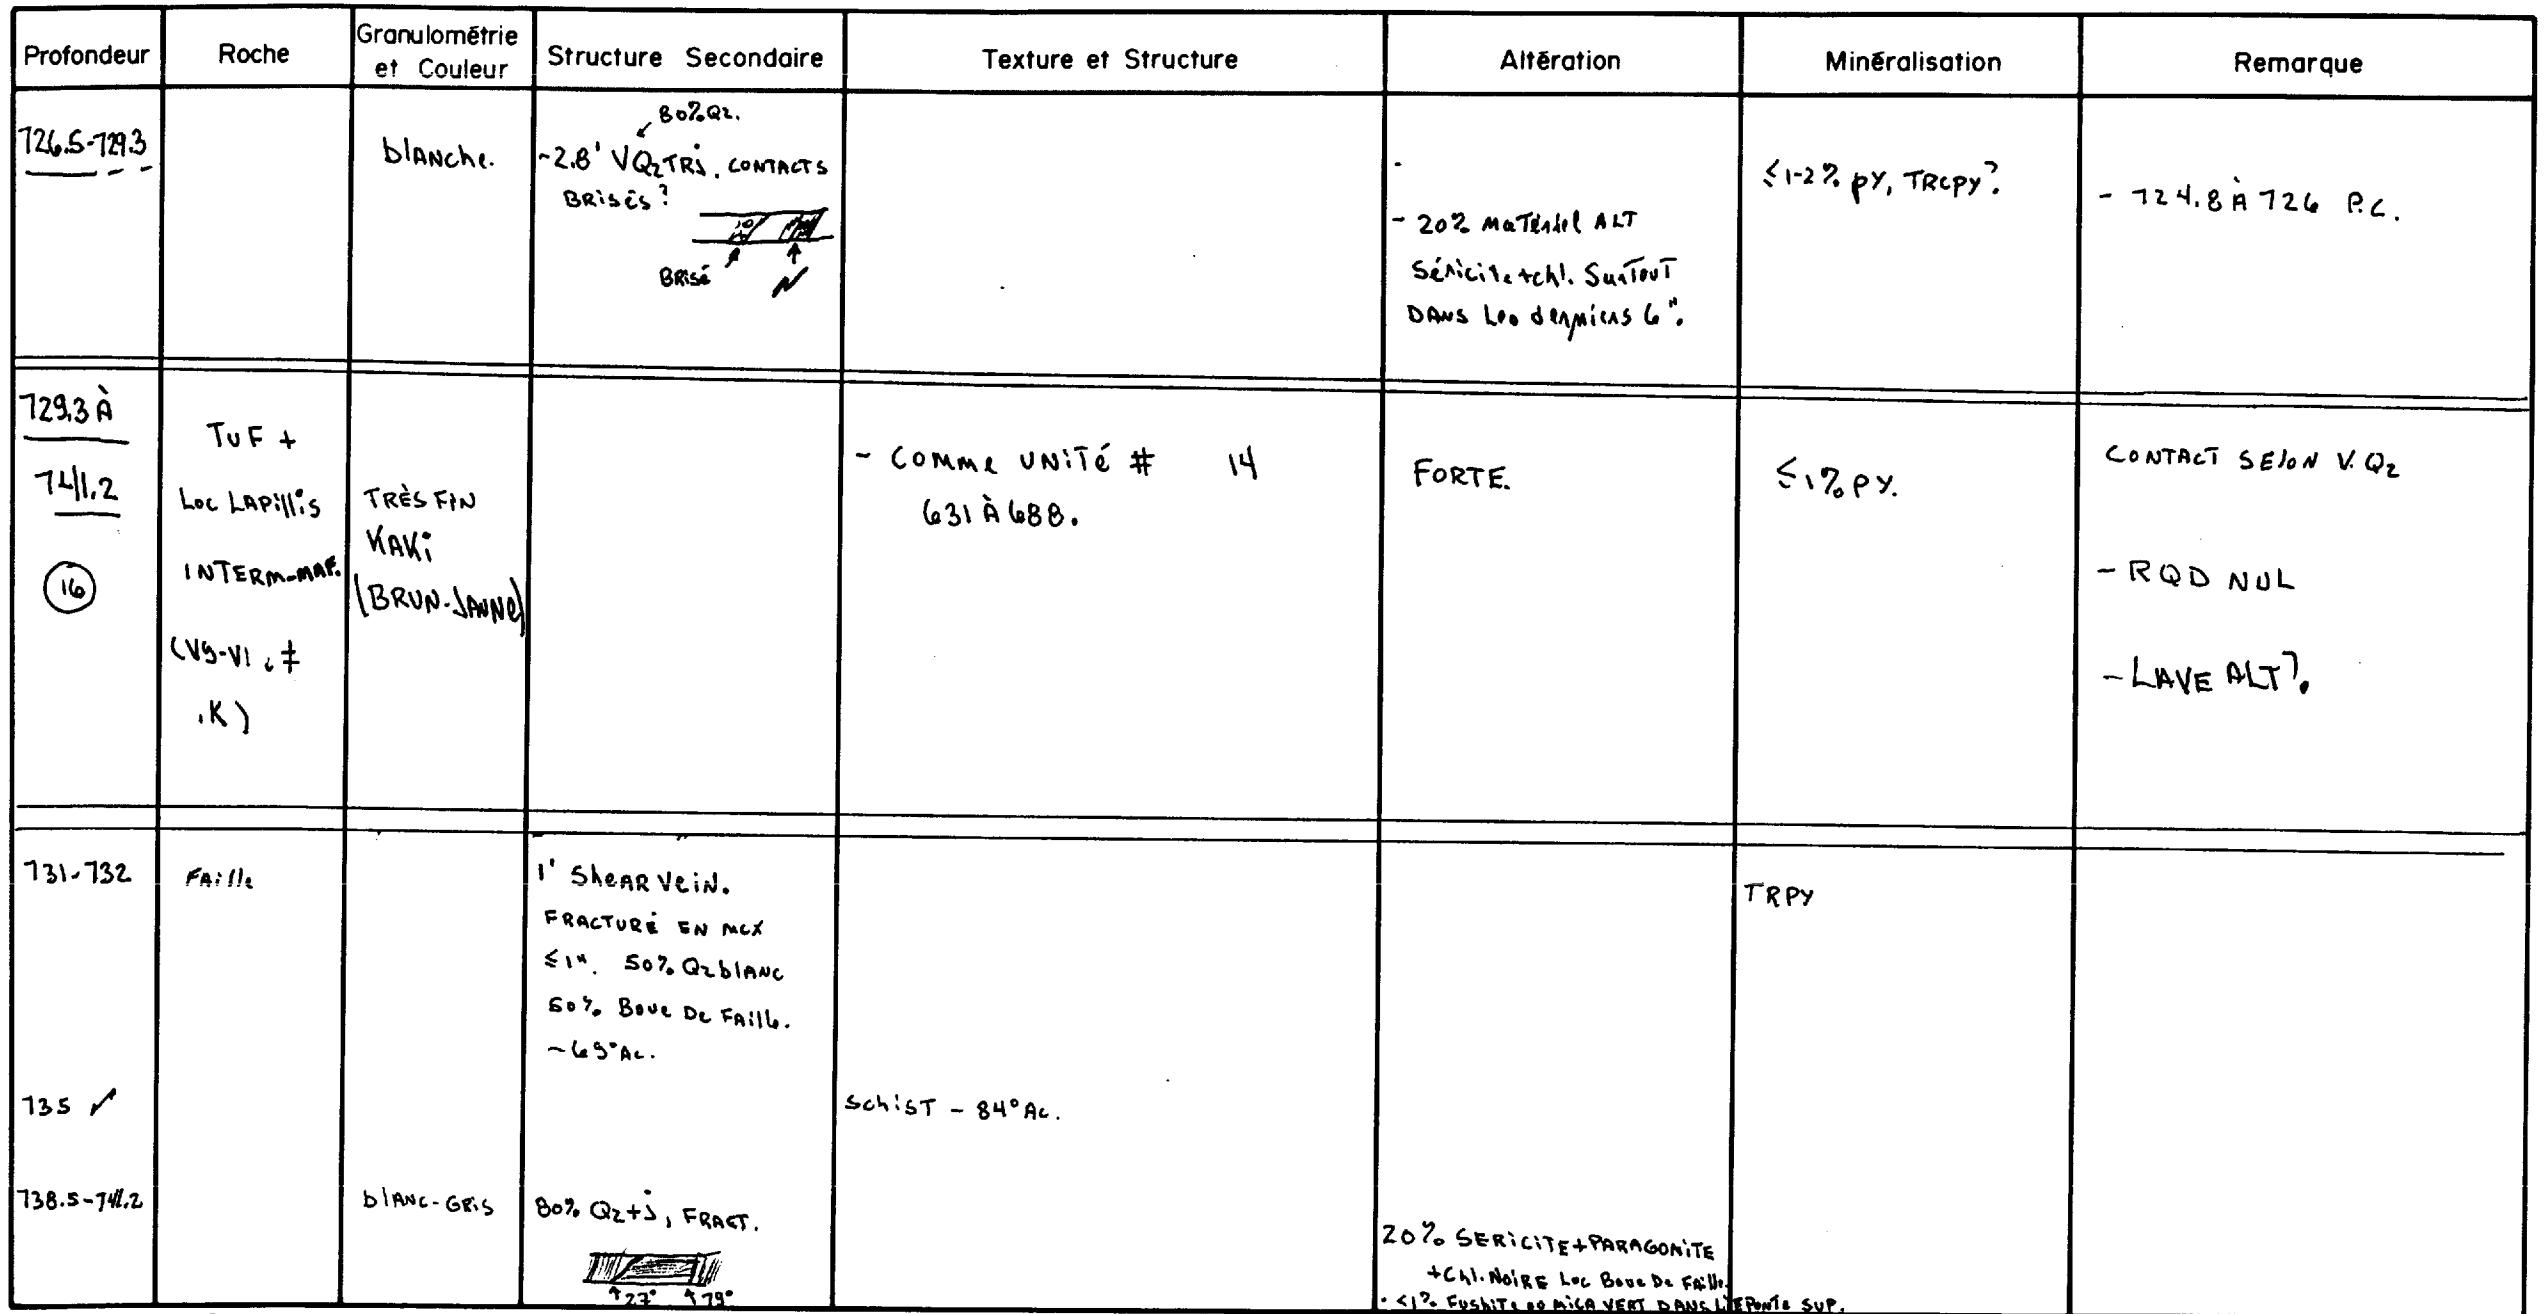 Profondeur
Roche
Granulométrie
et Couleur
Structure Secondaire
Texture et Structure
Altération
Minéralisation
Remarque
726.5-729.3
blanche.
80% Qz.
-2.8' VQzTRj. CONTACTS
BRISÉS?
BRISÉ
- 20% Matériel ALT
Séricite + chl. SurTouT
DANS Les derniers 6".
≤1-2% py, TRCPY?
- 724.8 À 726 P.C.
729.3 À
741.2
16
TUF +
Loc LAPillis
INTERM-MAF.
TRÈS FIN
KAKi
(BRUN-JAUNE)
- COMME UNITÉ # 14
631 À 688.
FORTE.
≤1% PY.
CONTACT SELON V.Qz
- RQD NUL
- LAVE ALT?
731-732
FAille
1' SheAR VeiN.
FRACTURÉ EN MCX
≤1". 50% Qz blANC
50% Boue De FAille.
TRPY
735
schisT - 84° Ac.
738.5-741.2
blANC-GRiS
80% Qz+j, FRACT.
27° 79°
20% SERICITE+PARAGONITE
+Chl. NoiRE Loc Boue De FAille.
• <1% FushiTe ou MicA VERT DANS L'ÉPonTe SUP.